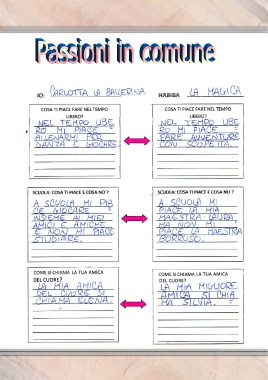 Passioni in comune
IO: CARLOTTA LA BALLERINA
HABIBA LA MAGICA
COSA TI PIACE FARE NEL TEMPO
LIBERO?
NEL TEMPO LIBE
RO MI PIACE =
ALLENARMI PER
DANZA E GIOCARE.
COSA TI PIACE FARE NEL TEMPO
LIBERO?
NEL TEMPO LIBE
RO MI PIACE =
FARE AVVENTURE
CON SCOPETTA.
SCUOLA: COSA TI PIACE E COSA NO ?
A SCUOLA MI PIA
CE GIOCARE
INSIEME AI MIEI
AMICI E AMICHE
E NON MI PIACE
STUDIARE.
SCUOLA: COSA TI PIACE E COSA NO ?
A SCUOLA MI
PIACE LA MIA
MAESTRA LAURA,
MA NON MI
PIACE LA MAESTRA
BORRUSO.
COME SI CHIAMA LA TUA AMICA
DEL CUORE?
LA MIA AMICA
DEL CUORE SI
CHIAMA ELENA.
COME SI CHIAMA LA TUA AMICA
DEL CUORE?
LA MIA MIGLIORE
AMICA SI CHIA
MA SILVIA. =